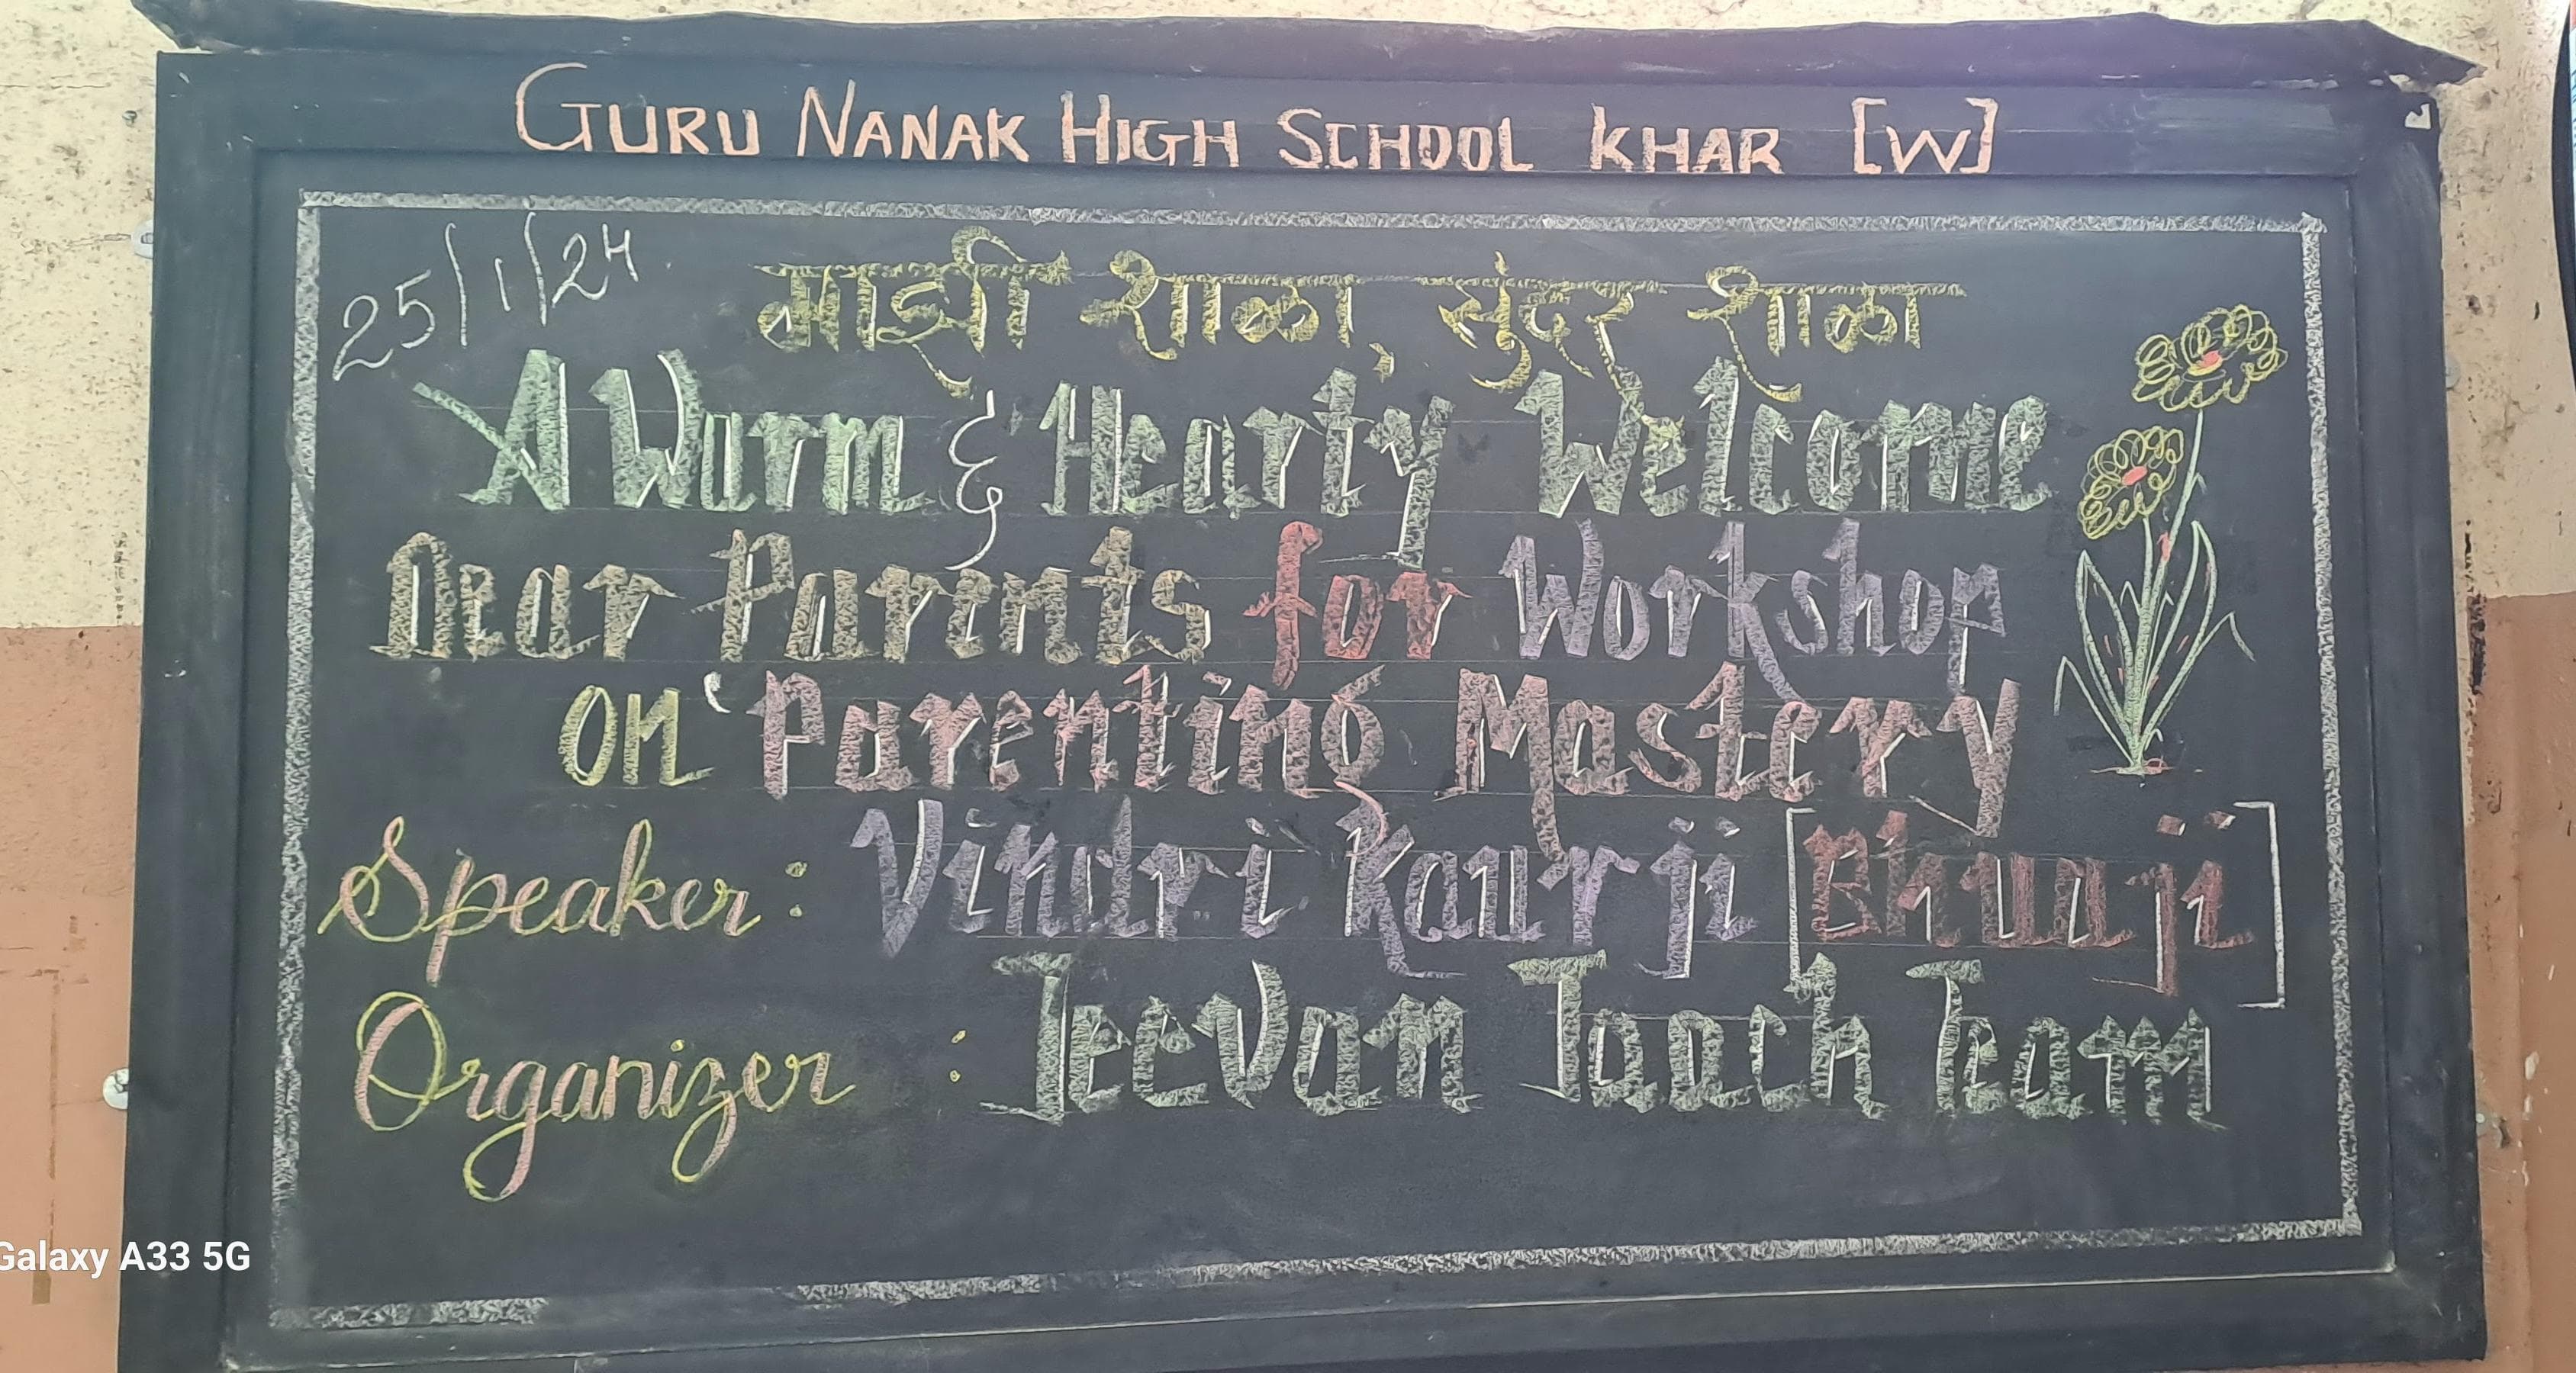 GURU NANAK HIGH SCHOOL KHAR [W]
25/1/24
माझी शाळा, सुंदर शाळा
A Warm & Hearty Welcome
Dear Parents for Workshop
on ‘Parenting Mastery
Speaker : Vindri Kaur ji [Bhuaji]
Organizer : Jeevan Jaach Team
Galaxy A33 5G